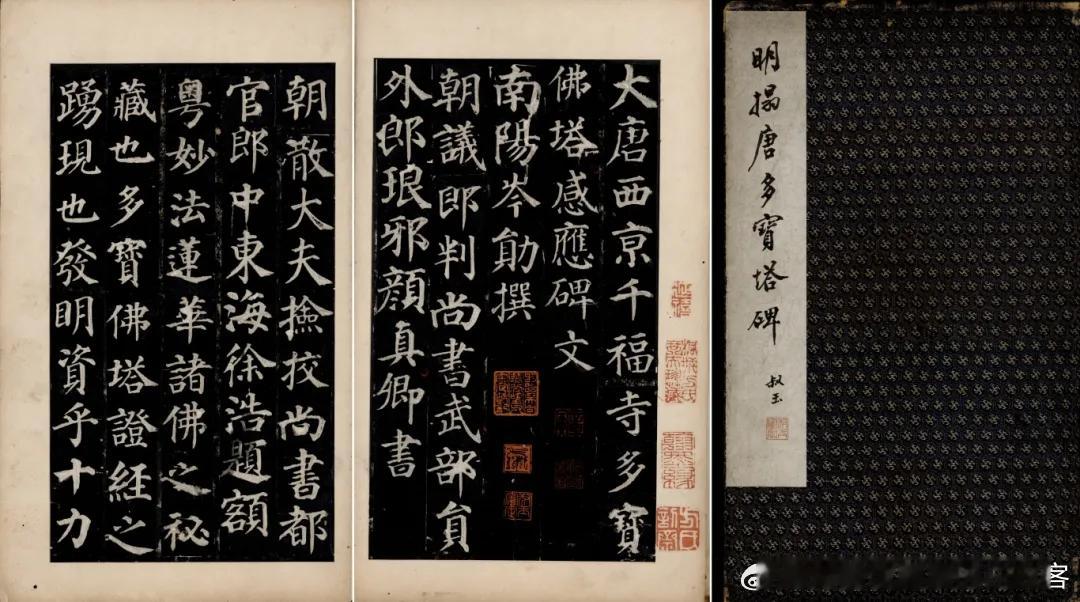 明搨唐多寶塔碑
叔玉
大唐西京千福寺多寶
佛塔感應碑文
南陽岑勛撰
朝議郎判尚書武部員
外郎琅邪顏真卿書
朝散大夫撿挍尚書都
官郎中東海徐浩題額
粵妙法蓮華諸佛之祕
藏也多寶佛塔證經之
踴現也發明資乎十力
客